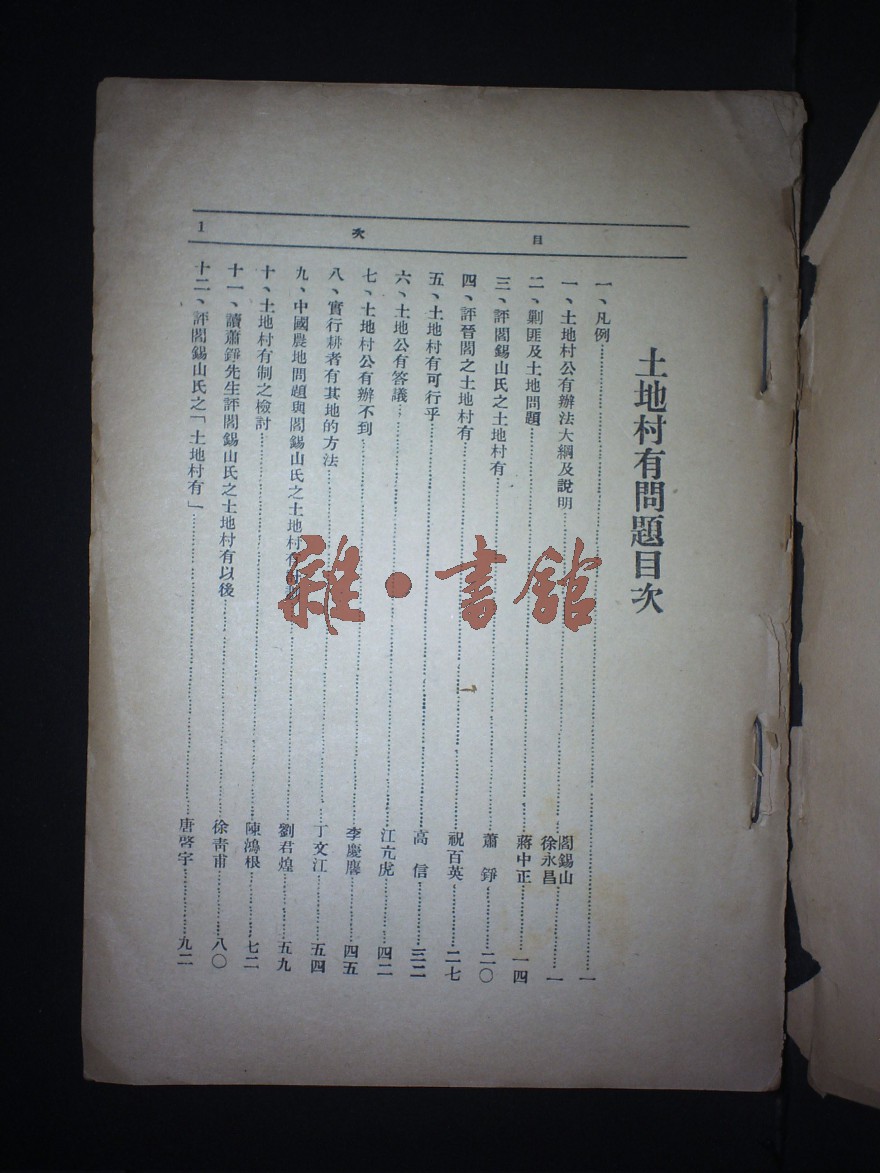 目次
1
土地村有問題目次
一、凡例……一
一、土地村公有辦法大綱及說明……閻錫山 徐永昌……一
二、剿匪及土地問題……蔣中正……一四
三、評閻錫山氏之土地村有……蕭錚……二〇
四、評晉閻之土地村有……祝百英……二七
五、土地村有可行乎……高信……三二
六、土地公有答議……江亢虎……四二
七、土地村公有辦不到……李慶麐……四五
八、實行耕者有其地的方法……丁文江……五四
九、中國農地問題與閻錫山氏之土地村有……劉君煌……五九
十、土地村有制之檢討……陳鴻根……七二
十一、讀蕭錚先生評閻錫山氏之土地村有以後……徐青甫……八〇
十二、評閻錫山氏之「土地村有」……唐啓宇……九二
雜·書館